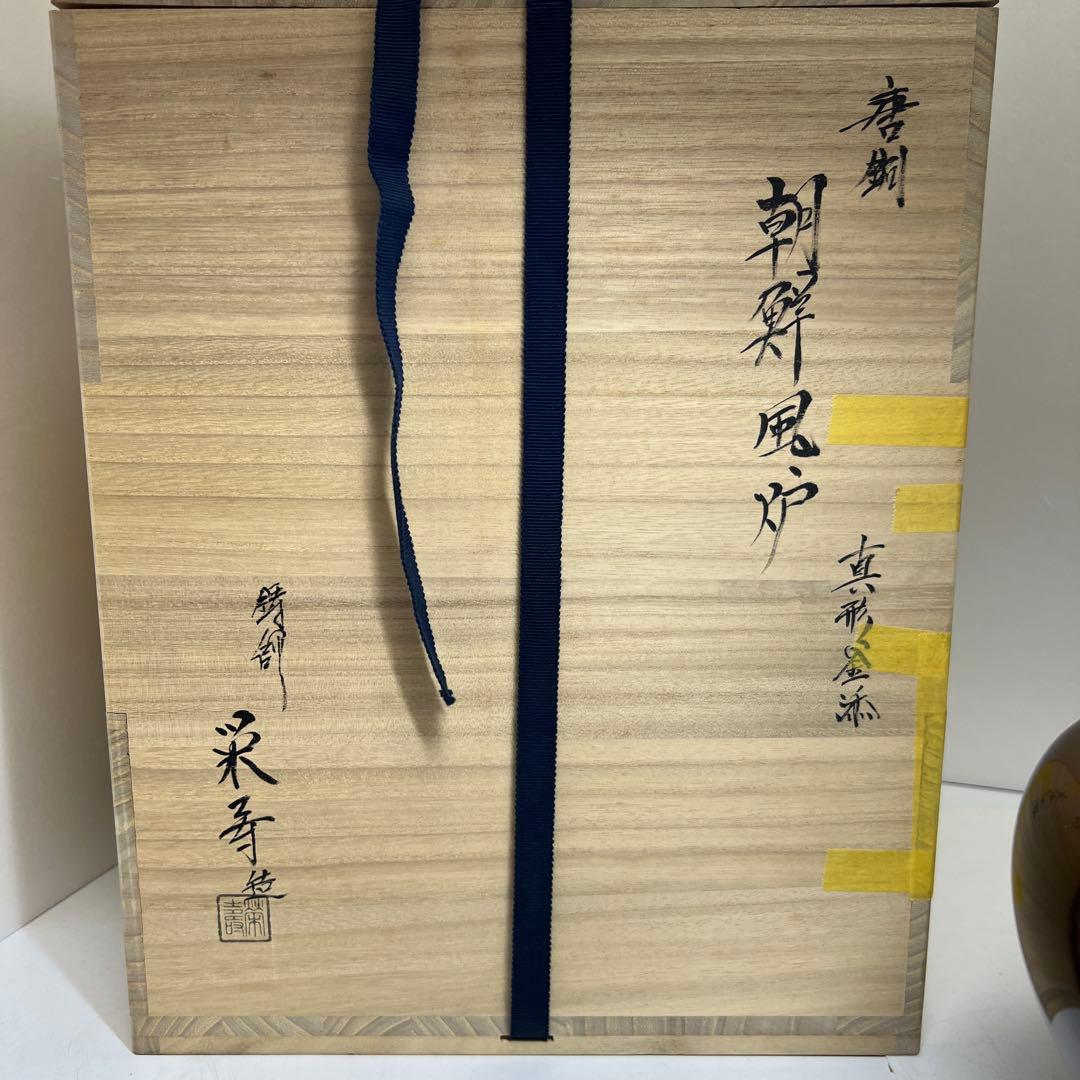 唐銅
朝鮮風炉
真形釜添
鋳師
栄寿造
栄寿